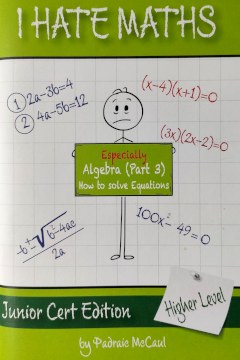 I HATE MATHS
① 2a-3b=4
② 4a-5b=12
(x-4)(x+1)=0
(3x)(2x-2)=0
Especially
Algebra (Part 3)
How to solve Equations
-b±√b²-4ac
2a
100x²-49=0
Higher Level
Junior Cert Edition
by Padraic McCaul